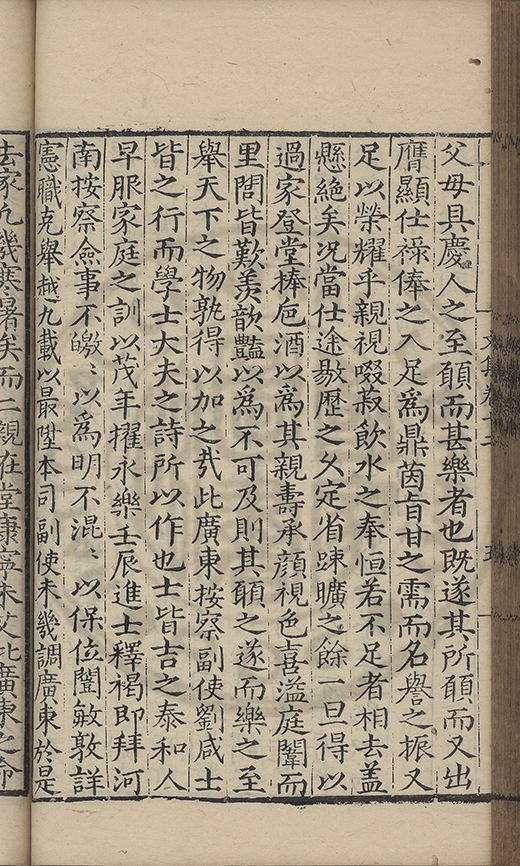 父母具慶人之至願而甚樂者也既遂其所願而又出
膺顯仕祿俸之入足爲鼎茵旨甘之需而名譽之振又
足以榮耀乎親視啜菽飲水之奉恒若不足者相去蓋
懸絶矣况當仕途敭歷之久定省踈曠之餘一旦得以
過家登堂捧巵酒以爲其親壽承顔視色喜溢庭闈而
里閭皆歎羡歆豔以爲不可及則其願之遂而樂之至
舉天下之物孰得以加之㢤此廣東按察副使劉咸士
皆之行而學士大夫之詩所以作也士皆吉之泰和人
早服家庭之訓以茂年擢永樂壬辰進士釋褐即拜河
南按察僉事不皦〻以爲明不混〻以保位闓敏敦詳
憲職克舉越九載以最陞本司副使未幾調廣東於是
去家九幾寒暑矣而二親在堂康寧未艾此廣東之命